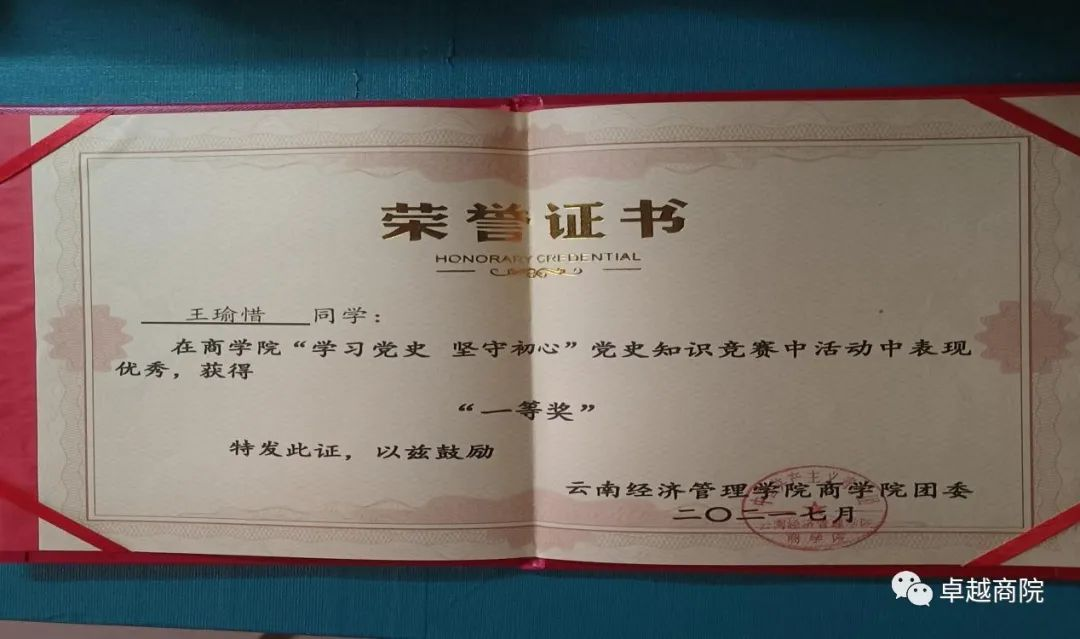 荣誉证书
HONORARY CREDENTIAL
王瑜惜 同学：
在商学院“学习党史 坚守初心”党史知识竞赛中活动中表现
优秀，获得
“一等奖”
特发此证，以兹鼓励
云南经济管理学院商学院团委
二〇二一七月
云南经济管理学院
商学院
卓越商院